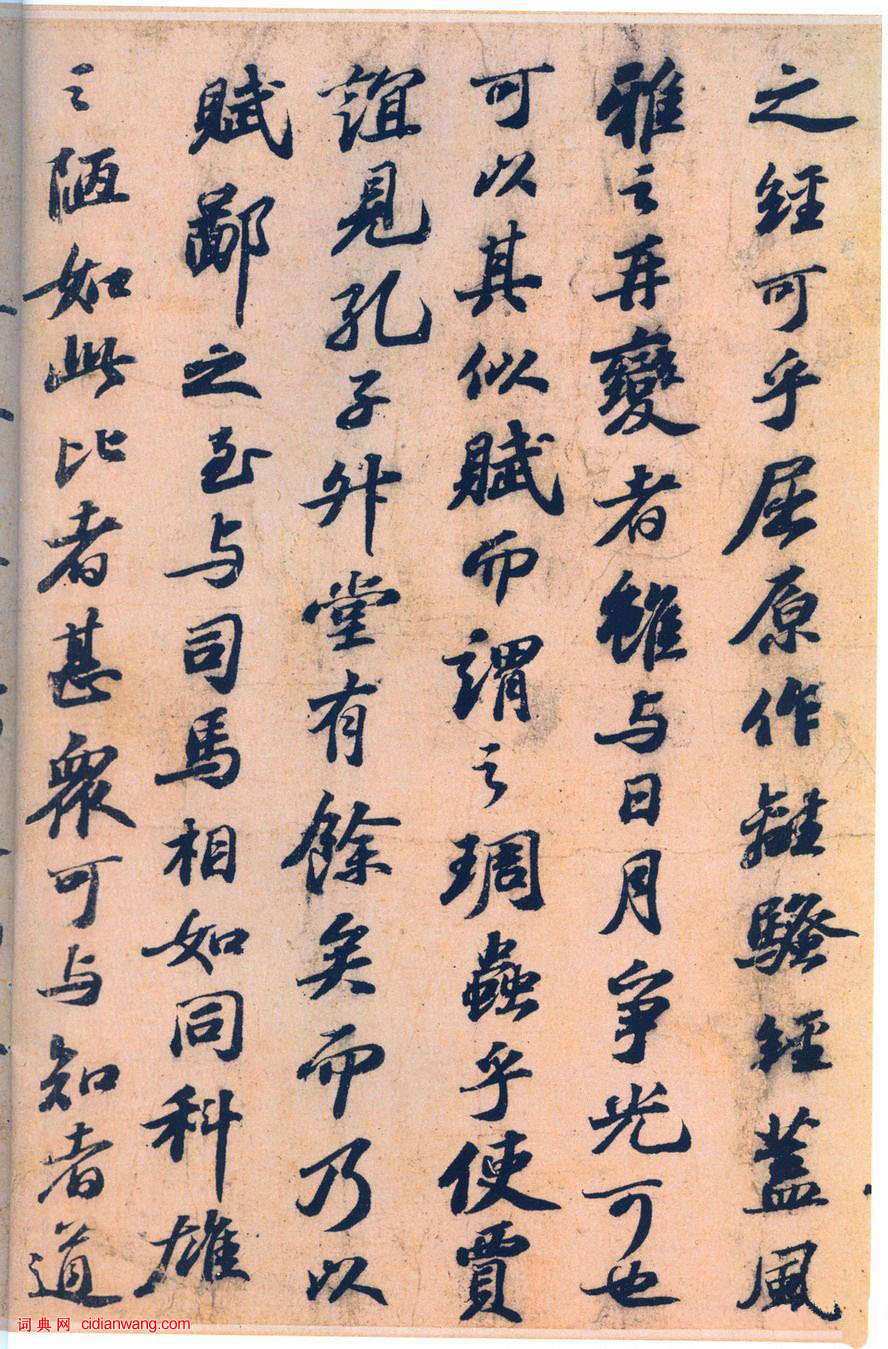 之經可乎屈原作離騷經蓋風
雅之再變者雖与日月爭光可也
可以其似賦而謂之琱蟲乎使賈
誼見孔子升堂有餘矣而乃以
賦鄙之至与司馬相如同科雄
之陋如此比者甚眾可与知者道
词典网 cidianwang.com